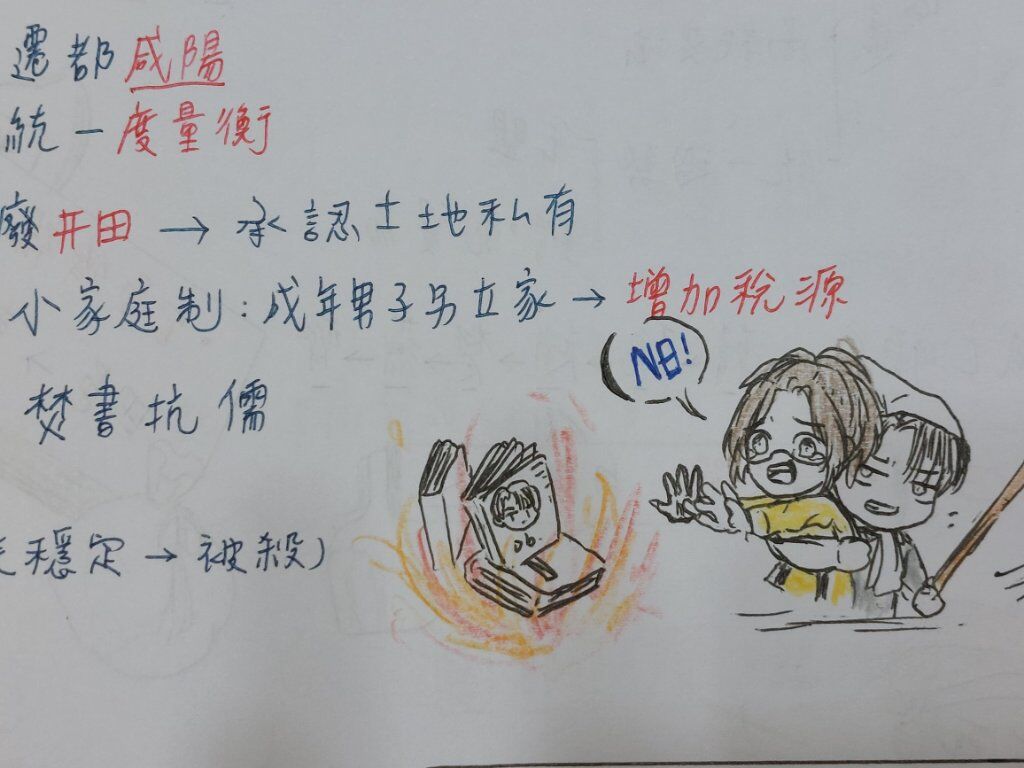 遷都咸陽
統一度量衡
廢井田→承認土地私有
小家庭制:成年男子另立家→增加稅源
NO!
焚書抗儒
穩定→被殺)